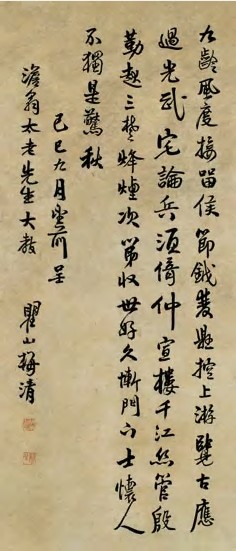 九齡風度接留侯節鉞懸控上游覽古應
過光武宅論兵須倚仲宣樓千江絲管殷
勤趣三楚烽煙次第收世好久慚門下士懷人
不獨是驚秋
己巳九月望前呈
澹翁太老先生大教
瞿山梅清